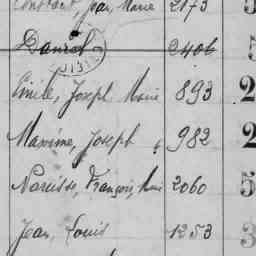 Constant, Jean, Marie 2173 5
Daniel 2406 5
Emile, Joseph Marie 893 2
Maxime, Joseph 982 2
Narcisse, François, Marie 2060 5
Jean, Louis 1253 3